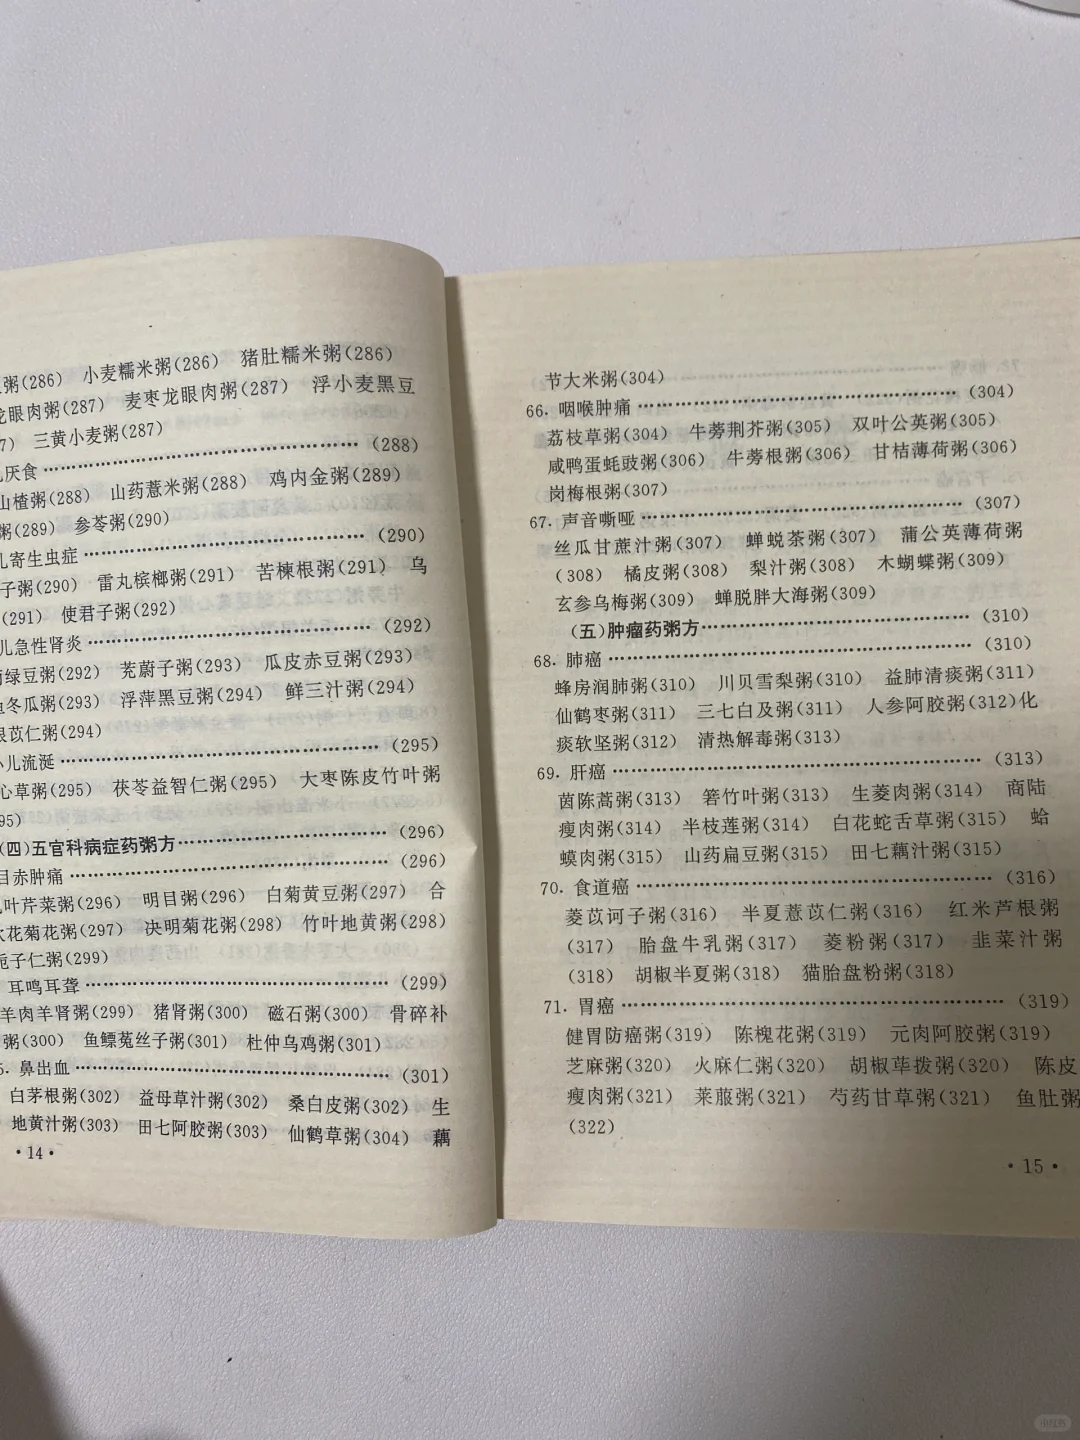 粥(286) 小麦糯米粥(286) 猪肚糯米粥(286)
龙眼肉粥(287) 麦枣龙眼肉粥(287) 浮小麦黑豆
7) 三黄小麦粥(287)
儿厌食……………………………………(288)
山楂粥(288) 山药薏米粥(288) 鸡内金粥(289)
粥(289) 参苓粥(290)
儿寄生虫症……………………………………(290)
子粥(290) 雷丸槟榔粥(291) 苦楝根粥(291) 乌
(291) 使君子粥(292)
儿急性肾炎……………………………………(292)
绿豆粥(292) 茺蔚子粥(293) 瓜皮赤豆粥(293)
冬瓜粥(293) 浮萍黑豆粥(294) 鲜三汁粥(294)
根苡仁粥(294)
小儿流涎……………………………………(295)
心草粥(295) 茯苓益智仁粥(295) 大枣陈皮竹叶粥
95)
(四)五官科病症药粥方……………………(296)
目赤肿痛……………………………………(296)
叶芹菜粥(296) 明目粥(296) 白菊黄豆粥(297) 合
欢花菊花粥(297) 决明菊花粥(298) 竹叶地黄粥(298)
栀子仁粥(299)
耳鸣耳聋……………………………………(299)
羊肉羊肾粥(299) 猪肾粥(300) 磁石粥(300) 骨碎补
粥(300) 鱼鳔菟丝子粥(301) 杜仲乌鸡粥(301)
5. 鼻出血……………………………………(301)
白茅根粥(302) 益母草汁粥(302) 桑白皮粥(302) 生
地黄汁粥(303) 田七阿胶粥(303) 仙鹤草粥(304) 藕
·14·
节大米粥(304)
66. 咽喉肿痛……………………………………(304)
荔枝草粥(304) 牛蒡荆芥粥(305) 双叶公英粥(305)
咸鸭蛋蚝豉粥(306) 牛蒡根粥(306) 甘桔薄荷粥(306)
岗梅根粥(307)
67. 声音嘶哑……………………………………(307)
丝瓜甘蔗汁粥(307) 蝉蜕茶粥(307) 蒲公英薄荷粥
(308) 橘皮粥(308) 梨汁粥(308) 木蝴蝶粥(309)
玄参乌梅粥(309) 蝉脱胖大海粥(309)
(五)肿瘤药粥方……………………………(310)
68. 肺癌……………………………………(310)
蜂房润肺粥(310) 川贝雪梨粥(310) 益肺清痰粥(311)
仙鹤枣粥(311) 三七白及粥(311) 人参阿胶粥(312)化
痰软坚粥(312) 清热解毒粥(313)
69. 肝癌……………………………………(313)
茵陈蒿粥(313) 箬竹叶粥(313) 生菱肉粥(314) 商陆
瘦肉粥(314) 半枝莲粥(314) 白花蛇舌草粥(315) 蛤
蟆肉粥(315) 山药扁豆粥(315) 田七藕汁粥(315)
70. 食道癌……………………………………(316)
菱苡诃子粥(316) 半夏薏苡仁粥(316) 红米芦根粥
(317) 胎盘牛乳粥(317) 菱粉粥(317) 韭菜汁粥
(318) 胡椒半夏粥(318) 猫胎盘粉粥(318)
71. 胃癌……………………………………(319)
健胃防癌粥(319) 陈槐花粥(319) 元肉阿胶粥(319)
芝麻粥(320) 火麻仁粥(320) 胡椒荜拨粥(320) 陈皮
瘦肉粥(321) 莱菔粥(321) 芍药甘草粥(321) 鱼肚粥
(322)
·15·